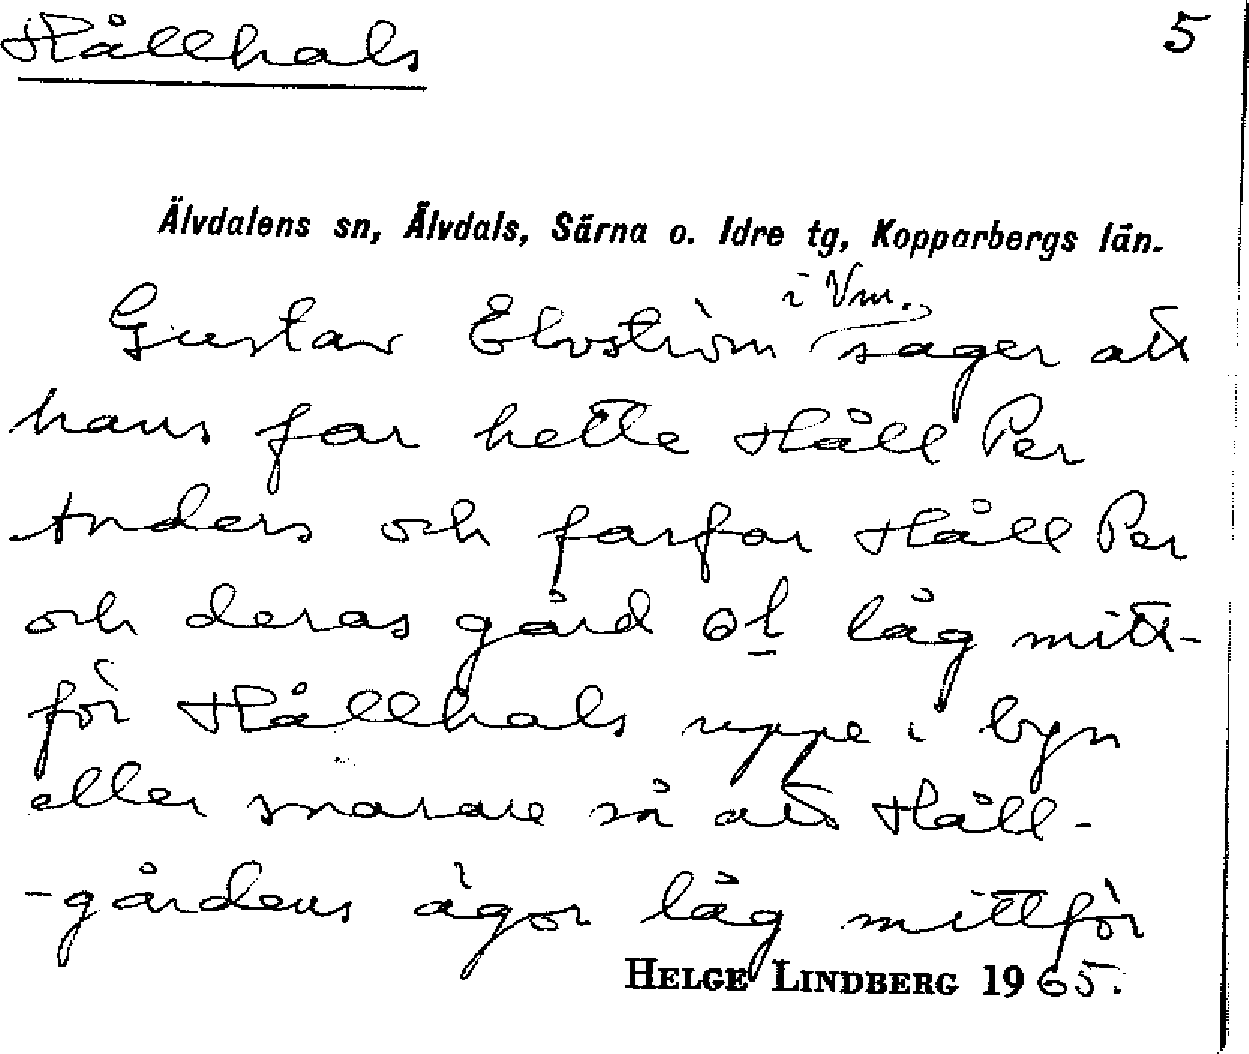 Hållhals 5
Älvdalens sn, Älvdals, Särna o. Idre tg, Kopparbergs län.
i Vm.
Gustav Elvström säger att
hans far hette Håll Per
Anders och farfar Håll Per
och deras gård låg mitt-
för Hållhals uppe i byn
eller snarare så att Håll-
-gårdens ägor låg mittför
HELGE LINDBERG 1965.